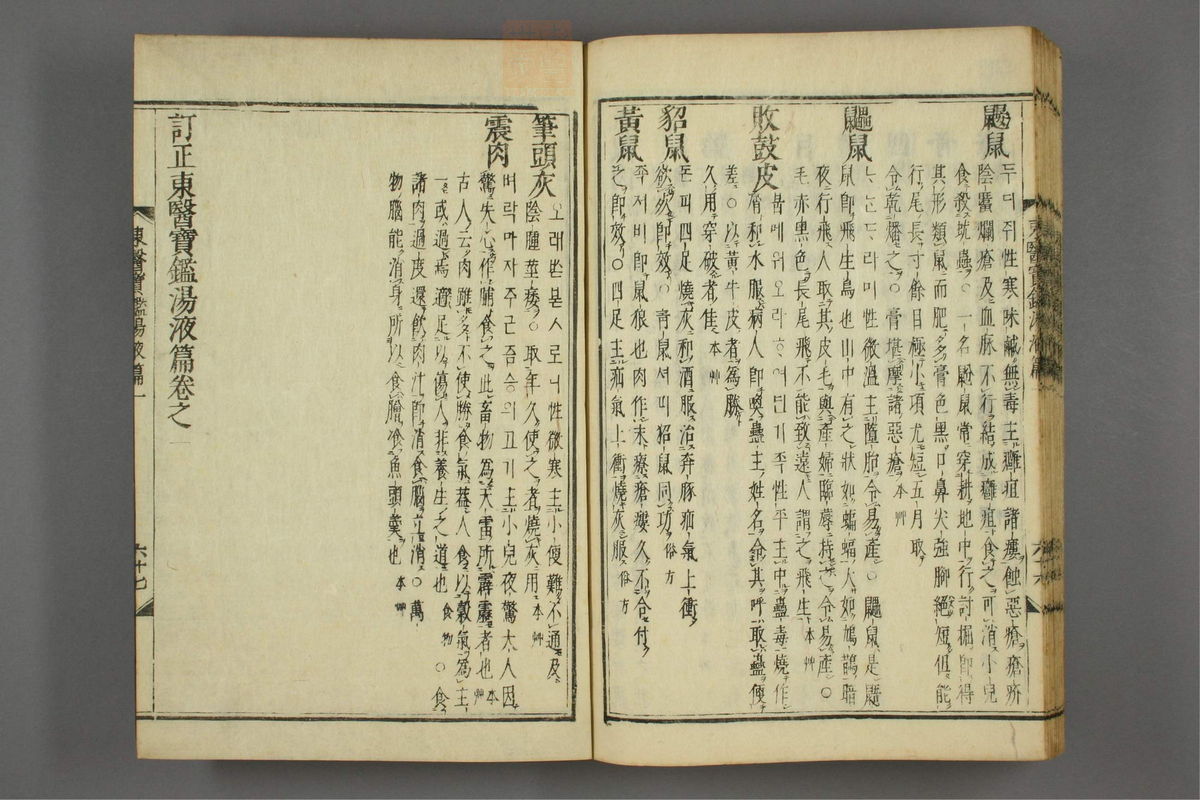 鼴鼠
두더쥐性寒味鹹無毒主癰疽諸瘻蝕惡瘡瘡疥
陰䘌爛瘡及血脉不行結成癰疽食之可消小兒
食殺蚘蟲○一名鼢鼠常穿耕地中行討掘即得
其形類鼠而肥多膏色黑口鼻尖強脚絕短但能
行尾長寸餘目極小項尤短五月取
令乾燔之○膏堪摩諸惡瘡本艸
鼺鼠
性微溫主墮胎令易產○鼺鼠是鼯
鼠即飛生鳥也山中有之狀如蝙蝠大如鴆鵲暗
夜行飛人取其皮毛與產婦臨蓐持之令易產○
毛赤黑色長尾飛不能致遠人謂之飛生本艸
敗鼓皮
性平主中蠱毒燒作
屑和水服病人即喚蠱主姓名令其呼取蠱便
差○以黃牛皮者為勝
久用穿破者佳本艸
貂鼠
돈피四足燒灰和酒服治奔豚疝氣上衝
欲死即效○青鼠셔피貂鼠同功俗方
黃鼠
족져비即鼠狼也肉作末療瘡瘻久不合付
之即效○四足主疝氣上衝燒灰服俗方
東醫寶鑑湯液篇一
六十六
筆頭灰
오래쓴붇人로니性微寒主小便難不通及
陰腫莖痿○取年久使之者燒灰用本艸
震肉
벼락마자주근즘승의고기主小兒夜驚大人因
驚失心作脯食之此畜物為天雷所霹靂者也本艸
古人云肉雖多不使勝食氣蓋人食以穀氣為主
一或過焉適足以傷人非養生之道也食物○食
諸肉過度還飮肉汁即消食腦立消○萬
物腦能消身所以食膾食魚頭羹也本艸
訂正東醫寶鑑湯液篇卷之一
東醫寶鑑湯液篇一
六十七